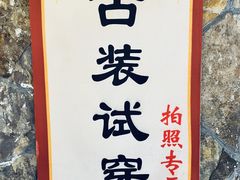 古装试穿
拍照专